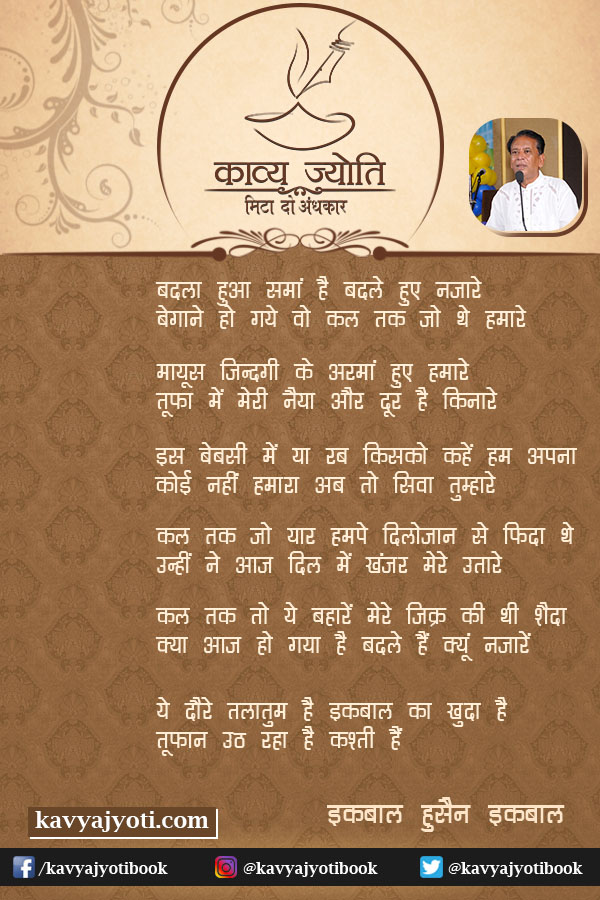 काव्य ज्योति
मिटा दो अंधकार
बदला हुआ समां है बदले हुए नजारे
बेगाने हो गये वो कल तक जो थे हमारे
मायूस जिन्दगी के अरमां हुए हमारे
तूफा में मेरी नैया और दूर है किनारे
इस बेबसी में या रब किसको कहें हम अपना
कोई नहीं हमारा अब तो सिवा तुम्हारे
कल तक जो यार हमपे दिलोजान से फिदा थे
उन्हीं ने आज दिल में खंजर मेरे उतारे
कल तक तो ये बहारें मेरे जिक्र की थी शैदा
क्या आज हो गया है बदले हैं क्यूं नजारें
ये दौरे तलातुम है इकबाल का खुदा है
तूफान उठ रहा है कश्ती हैं
इकबाल हुसैन इकबाल
kavyajyoti.com
/kavyajyotibook @kavyajyotibook @kavyajyotibook